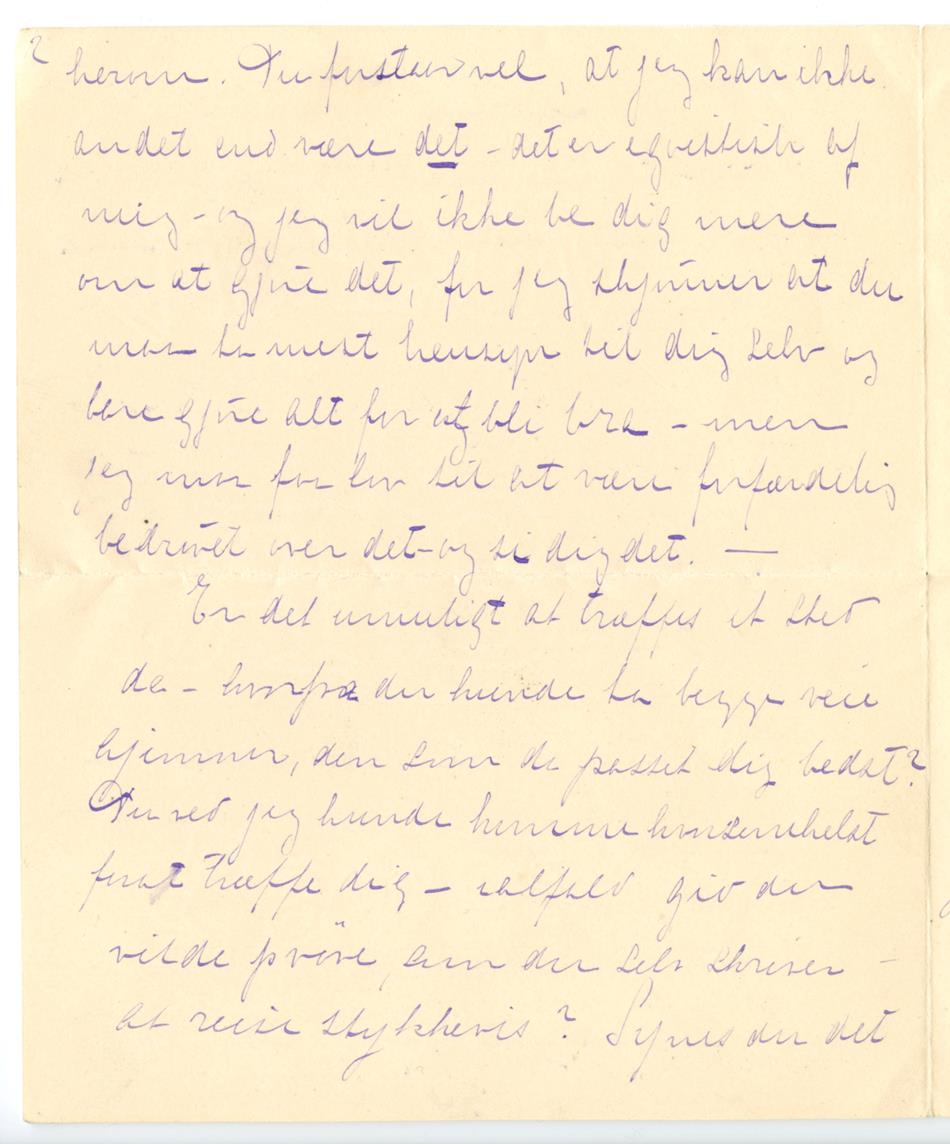 2
herom. Du forstaar vel, at jeg kan ikke
andet end være det - det er egoistisk af
mig - og jeg vil ikke be dig mere
om at gjøre det, for jeg skjønner at du
maa ta mest hensyn til dig selv og
bare gjøre alt for at bli bra - men
jeg maa faa lov til at være forfærdelig
bedrøvet over det - og si dig det. —
Er det umuligt at træffes et sted
da - hvorfra du kunde ta begge veie
hjemmer, den som da passet dig bedst?
Du ved jeg kunde komme hvorsomhelst
forat træffe dig - ialfald gid du
vilde prøve, som du selv skriver -
at reise stykkevis? Synes du det